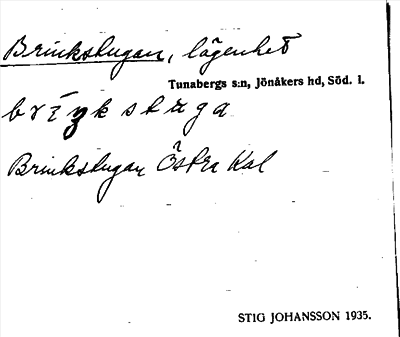 Brinkstugan, lägenhet
Tunabergs s:n, Jönåkers hd, Söd. l.
Brinkstugan Östra Kal
STIG JOHANSSON 1935.